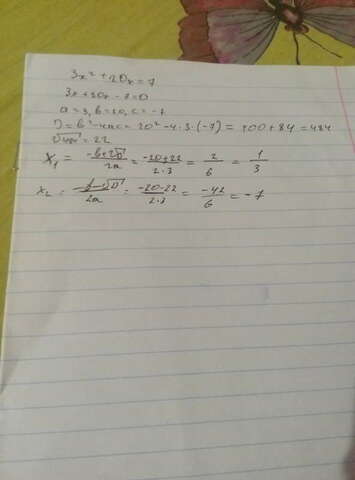 3x² + 20x = 7
3x + 20x - 7 = 0
a = 3, b = 20, c = -7
D = b² - 4ac = 20² - 4 · 3 · (-7) = 400 + 84 = 484
√484 = 22
x₁ = -b+√D / 2a = -20+22 / 2·3 = 2/6 = 1/3
x₂ = -b-√D / 2a = -20-22 / 2·3 = -42/6 = -7